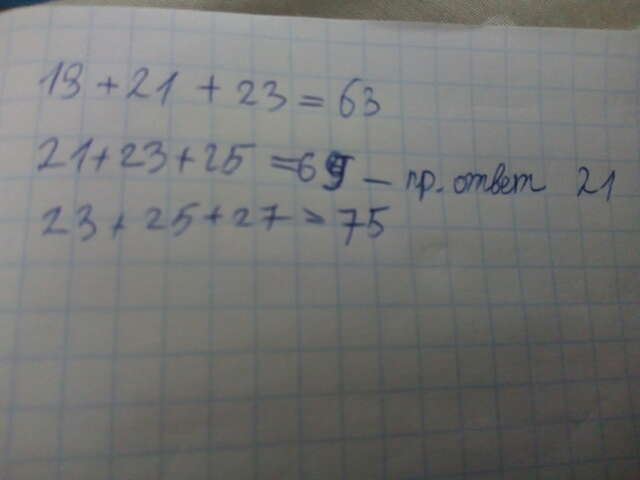 19 + 21 + 23 = 63
21 + 23 + 25 = 69 — пр. ответ 21
23 + 25 + 27 = 75